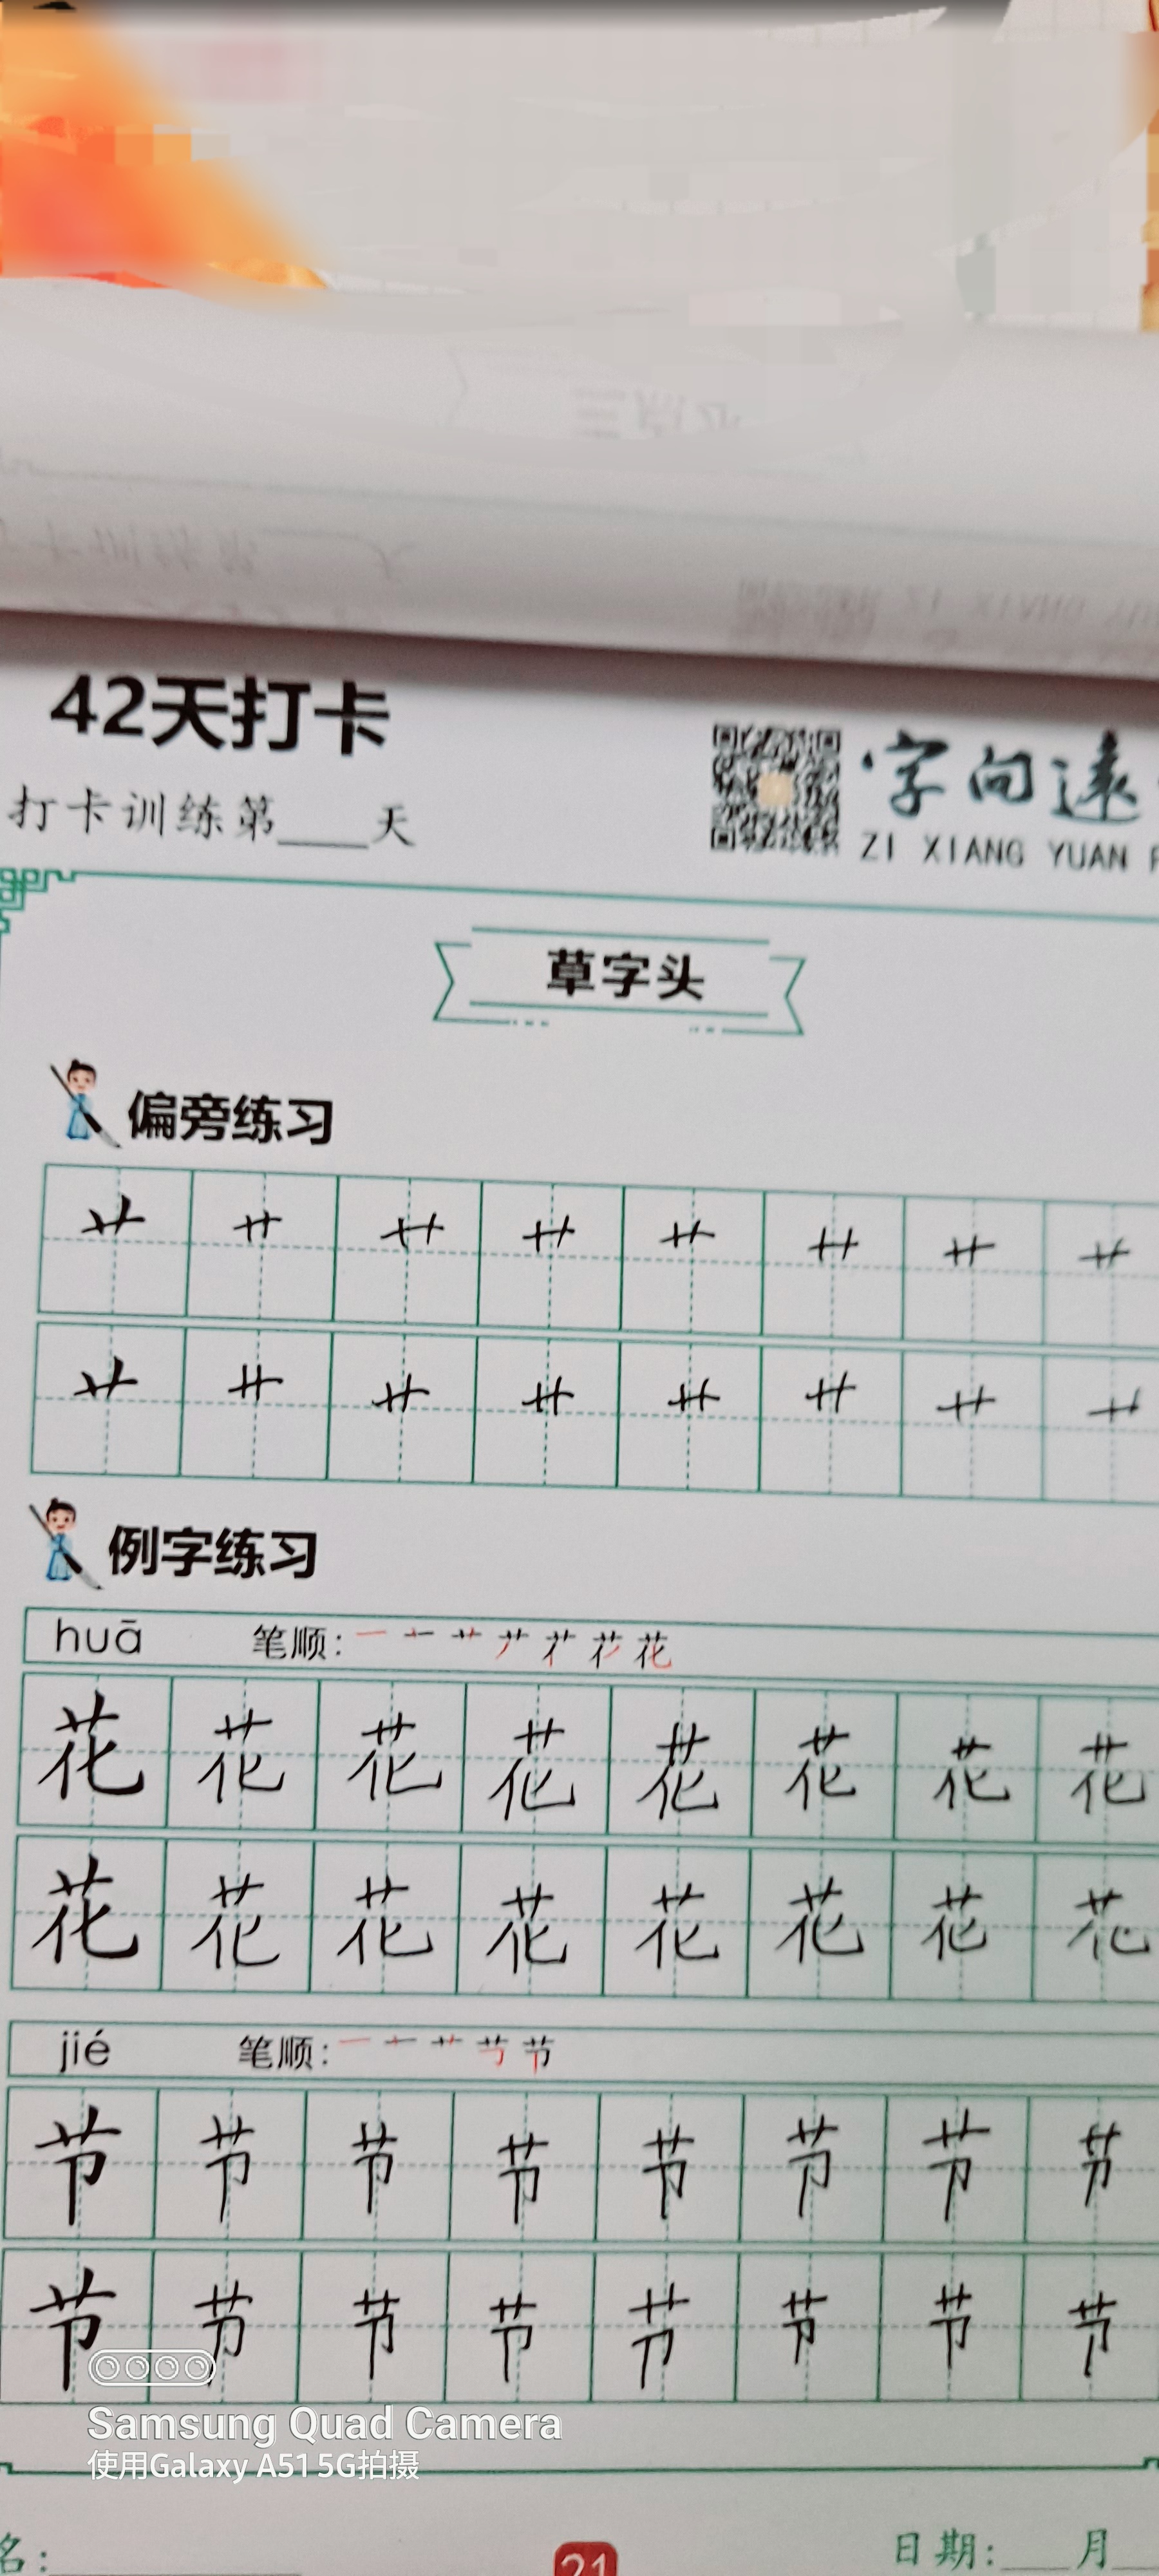 42天打卡
打卡训练第____天
字向远
ZI XIANG YUAN
草字头
偏旁练习
艹 艹 艹 艹 艹 艹 艹 艹
艹 艹 艹 艹 艹 艹 艹 艹
例字练习
huā 笔顺:
花 花 花 花 花 花 花 花
花 花 花 花 花 花 花 花
jié 笔顺:
节 节 节 节 节 节 节 节
节 节 节 节 节 节 节 节
Samsung Quad Camera
使用Galaxy A51 5G拍摄
名:____
21
日期:____月